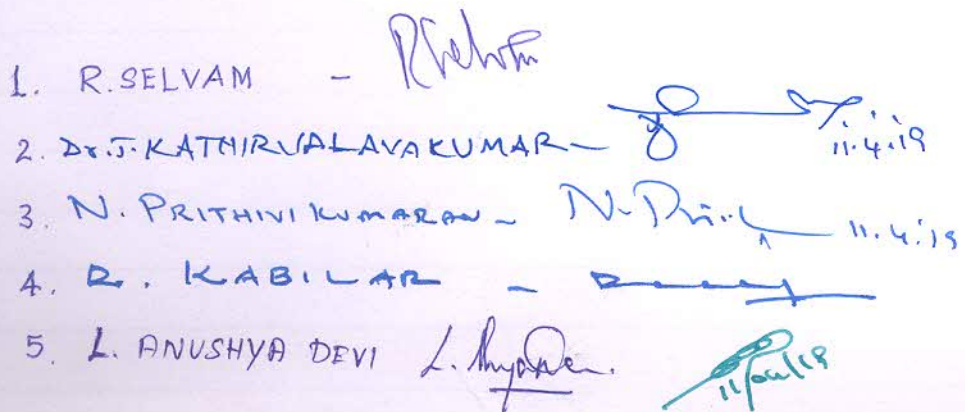 1. R. SELVAM - RSelvam
2. Dr. J. KATHIRVALAVAKUMAR - 11.4.19
3. N. PRITHIVIKUMARAN - 11.4.19
4. R. KABILAR -
5. L. ANUSHYA DEVI
11/04/19